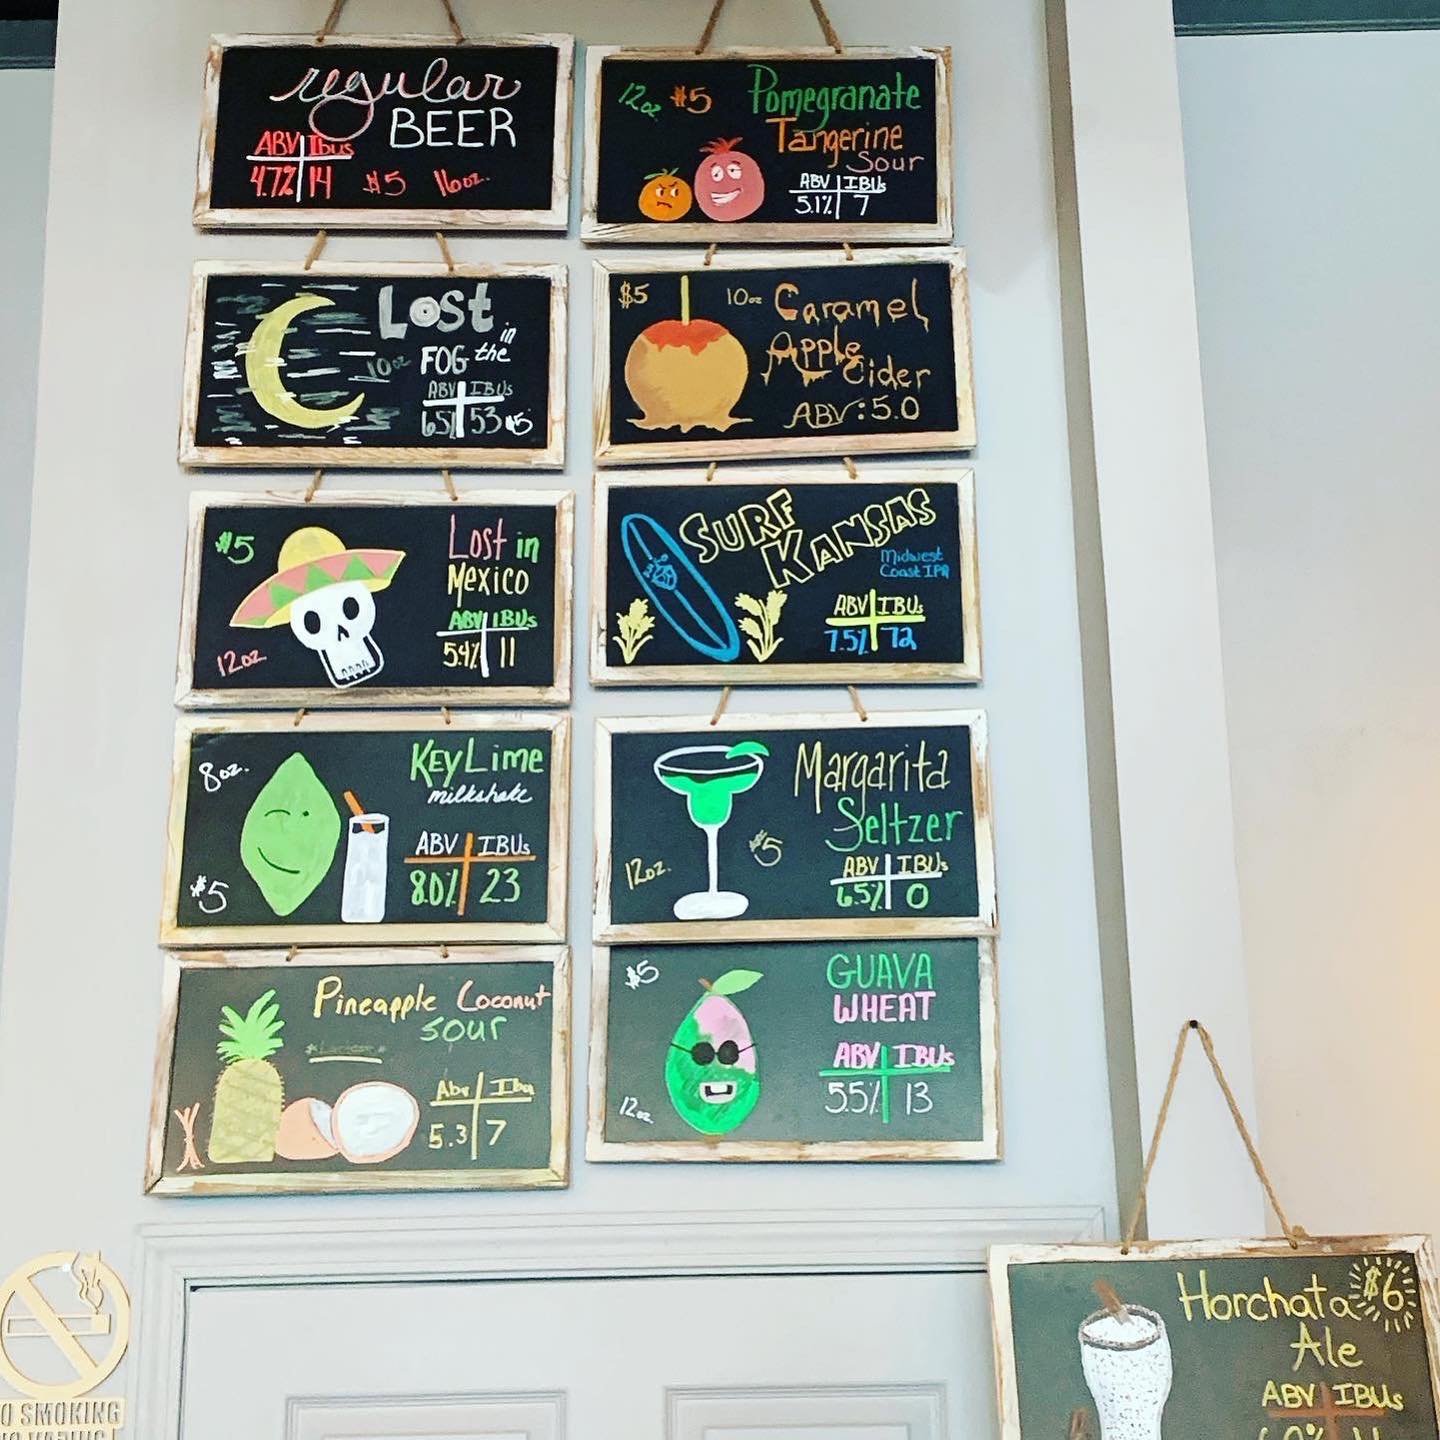 regular
BEER
ABV IBUs
4.7% 14 $5 16oz.
Lost
in
FOG the
10oz
ABV IBUs
6.5% 53 $5
$5
Lost in
Mexico
ABV IBUs
5.4% 11
12oz.
8oz.
Key Lime
milkshake
ABV IBUs
8.0% 23
$5
Pineapple Coconut
Sour
*Lactose*
Abv Ibu
5.3 7
12oz $5 Pomegranate
Tangerine
Sour
ABV IBUs
5.1% 7
$5 10oz Caramel
Apple
Cider
ABV: 5.0
SURF
KANSAS
Midwest
Coast IPA
ABV IBUs
7.5% 72
Margarita
Seltzer
$5
12oz.
ABV IBUs
6.5% 0
$5
GUAVA
WHEAT
ABV IBUs
5.5% 13
12oz
Horchata $6
Ale
ABV IBUs
O SMOKING